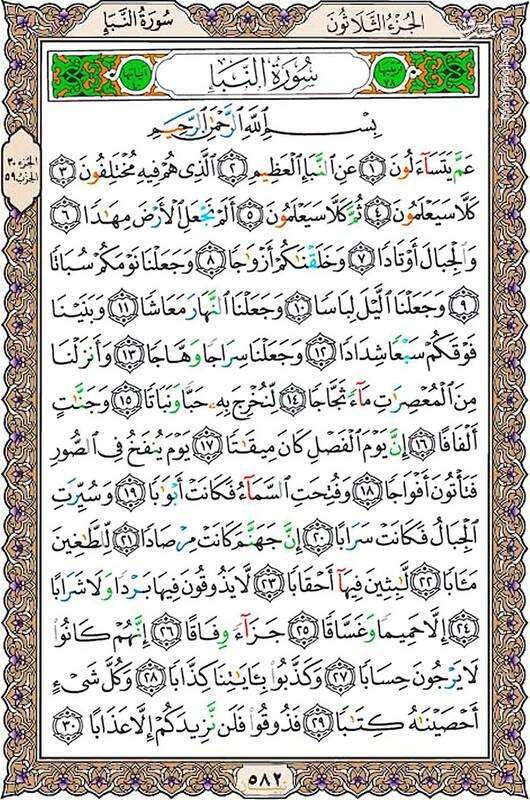 سُورَةُ النَّبَإِ
الجُزْءُ الثَّلَاثُونَ
سُورَةُ النَّبَإِ
الجزء ٣٠
الحزب ٥٩
بِسْمِ ٱللَّهِ ٱلرَّحْمَٰنِ ٱلرَّحِيمِ
عَمَّ يَتَسَآءَلُونَ ١ عَنِ ٱلنَّبَإِ ٱلْعَظِيمِ ٢ ٱلَّذِى هُمْ فِيهِ مُخْتَلِفُونَ ٣
كَلَّا سَيَعْلَمُونَ ٤ ثُمَّ كَلَّا سَيَعْلَمُونَ ٥ أَلَمْ نَجْعَلِ ٱلْأَرْضَ مِهَٰدًا ٦
وَٱلْجِبَالَ أَوْتَادًا ٧ وَخَلَقْنَٰكُمْ أَزْوَٰجًا ٨ وَجَعَلْنَا نَوْمَكُمْ سُبَاتًا
٩ وَجَعَلْنَا ٱلَّيْلَ لِبَاسًا ١٠ وَجَعَلْنَا ٱلنَّهَارَ مَعَاشًا ١١ وَبَنَيْنَا
فَوْقَكُمْ سَبْعًا شِدَادًا ١٢ وَجَعَلْنَا سِرَاجًا وَهَّاجًا ١٣ وَأَنزَلْنَا
مِنَ ٱلْمُعْصِرَٰتِ مَآءً ثَجَّاجًا ١٤ لِّنُخْرِجَ بِهِۦ حَبًّا وَنَبَاتًا ١٥ وَجَنَّٰتٍ
أَلْفَافًا ١٦ إِنَّ يَوْمَ ٱلْفَصْلِ كَانَ مِيقَٰتًا ١٧ يَوْمَ يُنفَخُ فِى ٱلصُّورِ
فَتَأْتُونَ أَفْوَاجًا ١٨ وَفُتِحَتِ ٱلسَّمَآءُ فَكَانَتْ أَبْوَٰبًا ١٩ وَسُيِّرَتِ
ٱلْجِبَالُ فَكَانَتْ سَرَابًا ٢٠ إِنَّ جَهَنَّمَ كَانَتْ مِرْصَادًا ٢١ لِّلطَّٰغِينَ
مَـَٔابًا ٢٢ لَّٰبِثِينَ فِيهَآ أَحْقَابًا ٢٣ لَّا يَذُوقُونَ فِيهَا بَرْدًا وَلَا شَرَابًا
٢٤ إِلَّا حَمِيمًا وَغَسَّاقًا ٢٥ جَزَآءً وِفَاقًا ٢٦ إِنَّهُمْ كَانُوا۟
لَا يَرْجُونَ حِسَابًا ٢٧ وَكَذَّبُوا۟ بِـَٔايَٰتِنَا كِذَّابًا ٢٨ وَكُلَّ شَىْءٍ
أَحْصَيْنَٰهُ كِتَٰبًا ٢٩ فَذُوقُوا۟ فَلَن نَّزِيدَكُمْ إِلَّا عَذَابًا ٣٠
٥٨٢